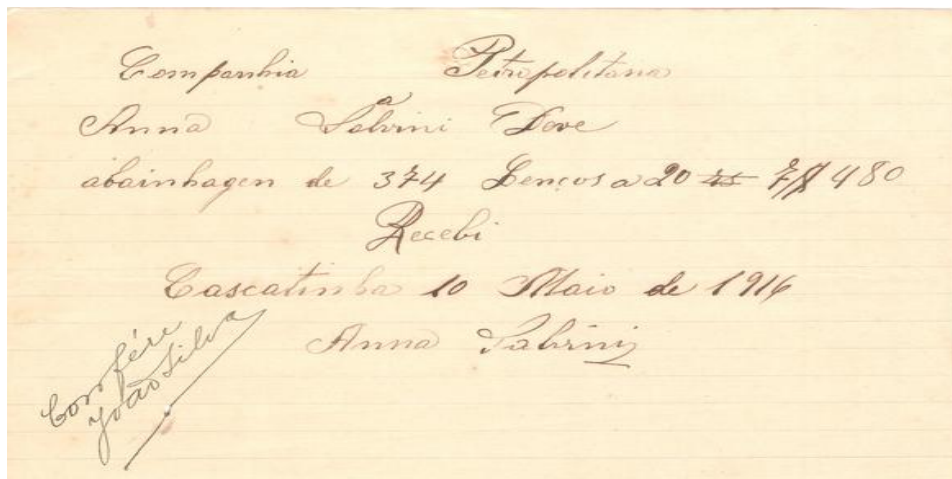 Companhia Petropolitana
a
Anna Sabrini Deve
abainhagen de 374 Lenços a 20 rs 7$480
Recebi
Cascatinha 10 Maio de 1916
Anna Sabrini
Confére
João Silva